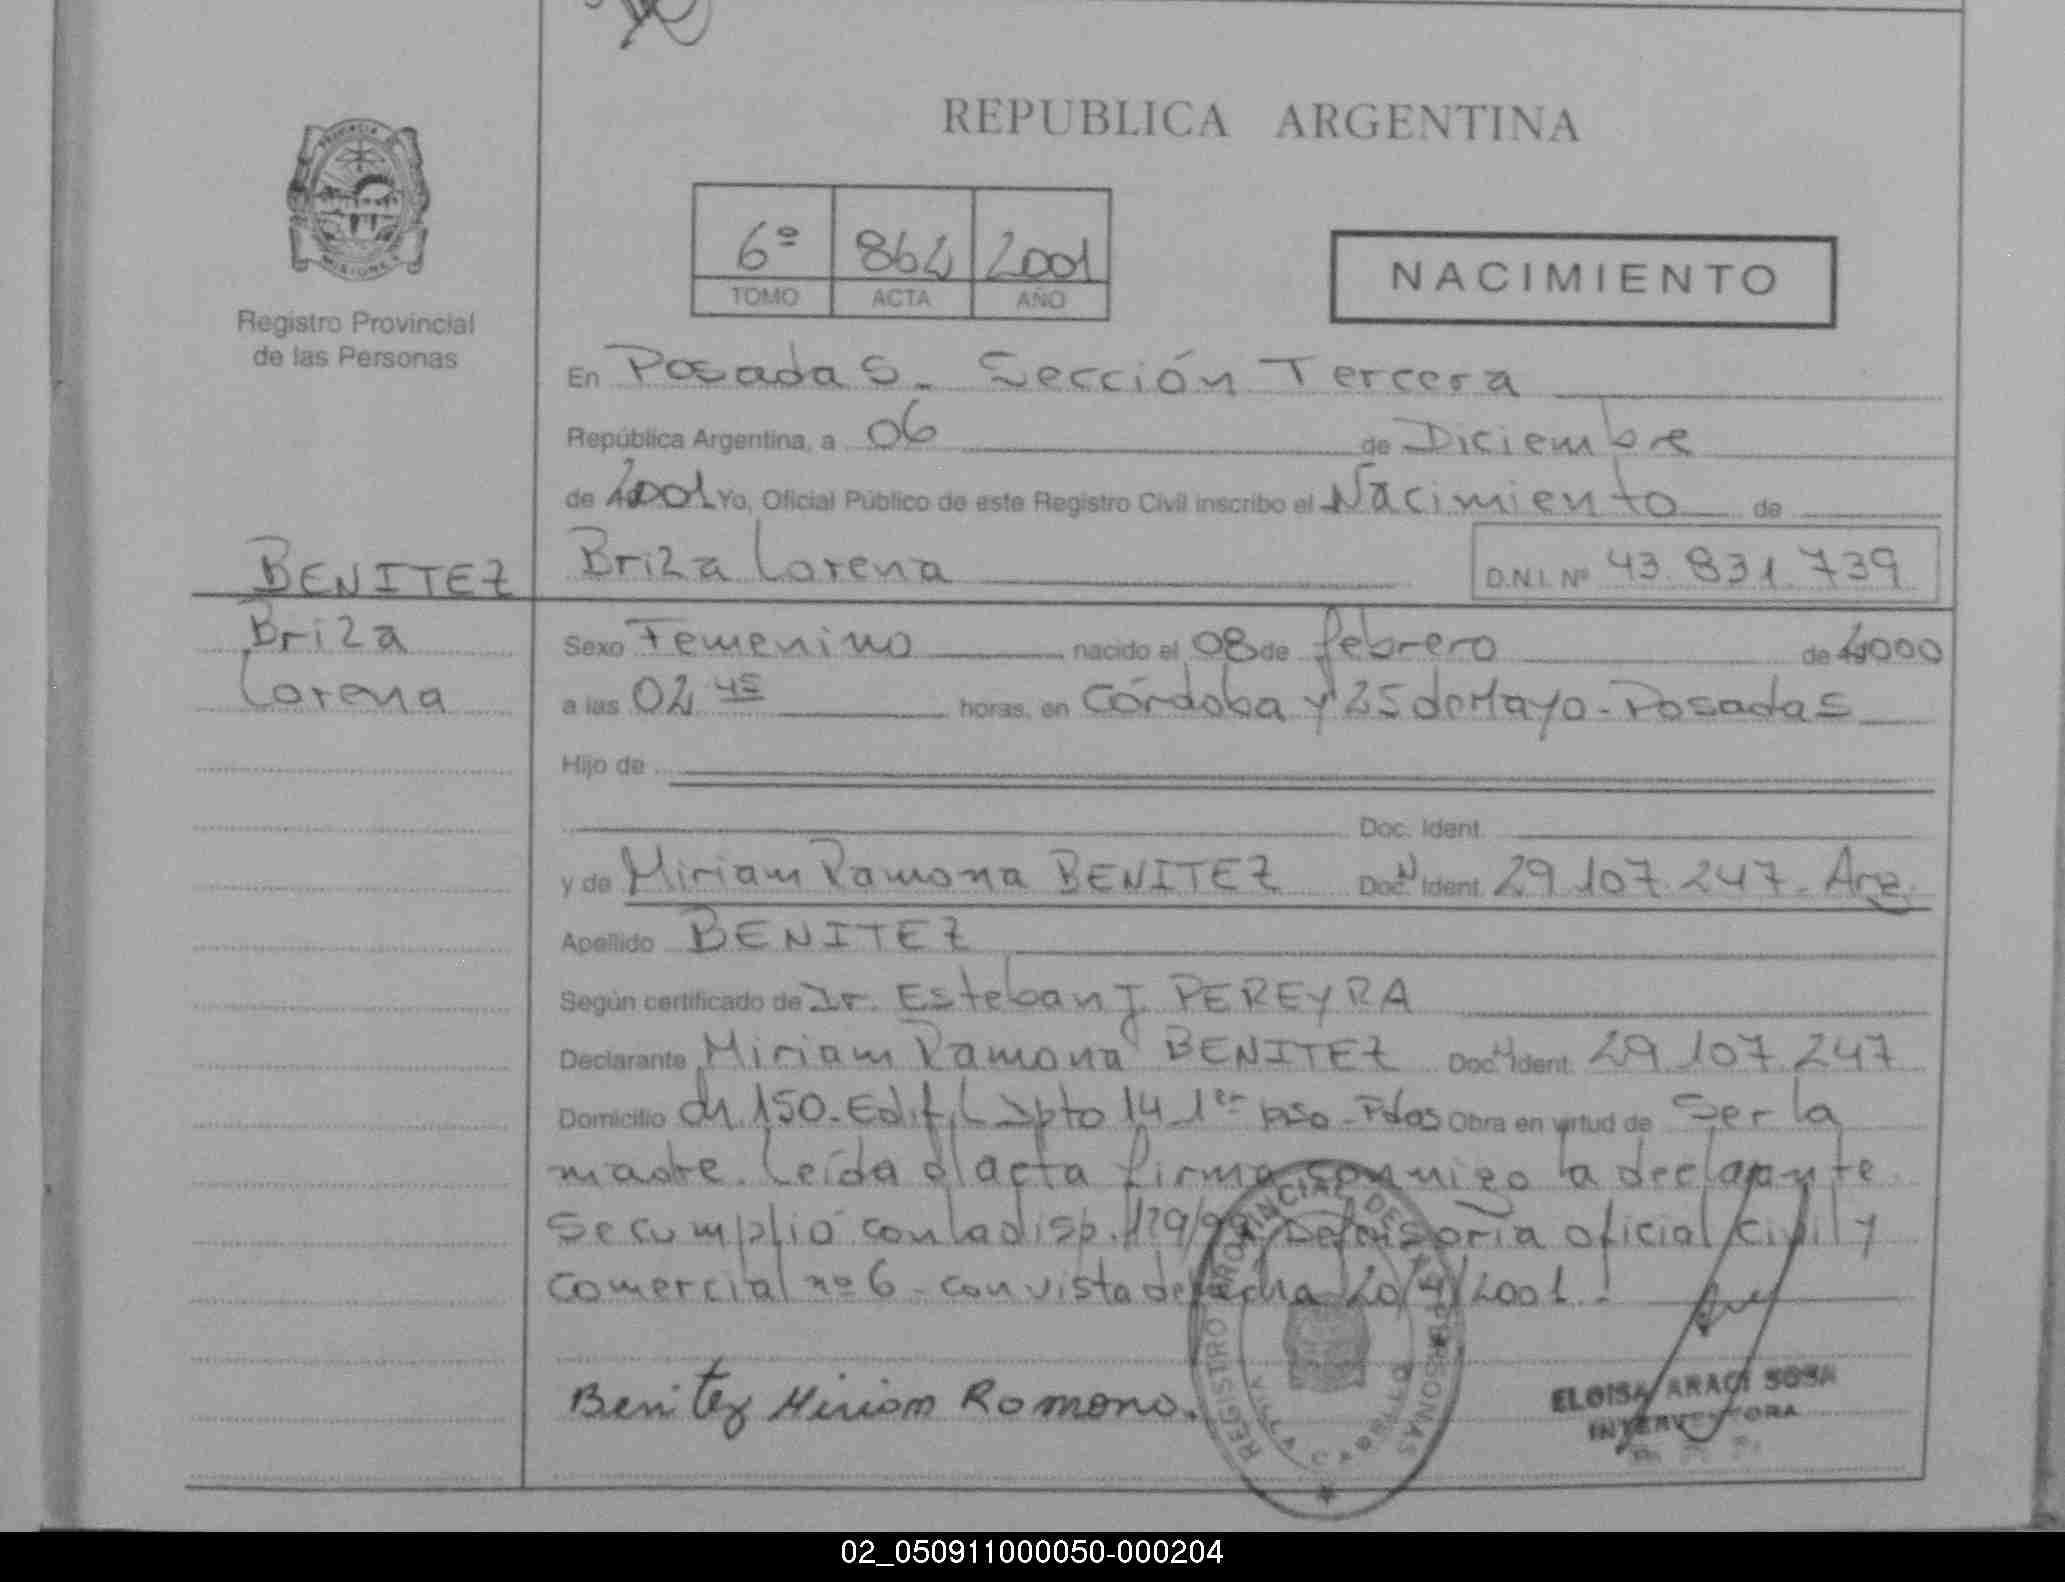 REPUBLICA ARGENTINA
PROVINCIA DE
MISIONES
Registro Provincial
de las Personas
6º 864 2001
TOMO ACTA AÑO
NACIMIENTO
En Posadas. Sección Tercera
República Argentina, a 06 de Diciembre
de 2001 Yo, Oficial Público de este Registro Civil inscribo el Nacimiento de
BENITEZ Briza Lorena D.N.I. Nº 43.831.739
Briza
Lorena
Sexo Femenino nacido el 08 de febrero de 2000
a las 02 45 horas, en Córdoba y 25 de Mayo - Posadas
Hijo de
Doc. Ident.
y de Miriam Ramona BENITEZ Doc. Ident. 29.107.247. Arg.
Apellido BENITEZ
Según certificado de Dr. Esteban J. PEREYRA
Declarante Miriam Ramona BENITEZ Doc. Ident. 29.107.247
Domicilio ch. 150. Edif. L Dpto 14 1er piso - Pdas Obra en virtud de Ser la
madre. Leída el acta firma conmigo la declarante.
Se cumplió con la disp. 179/99 Defensoría oficial civil y
comercial nº 6 - con vista de fecha 20/4/2001.-
Benitez Miriam Romona.
REGISTRO PROVINCIAL DE LAS PERSONAS
ELOISA ARACI SOSA
INTERVENTORA
02_050911000050-000204